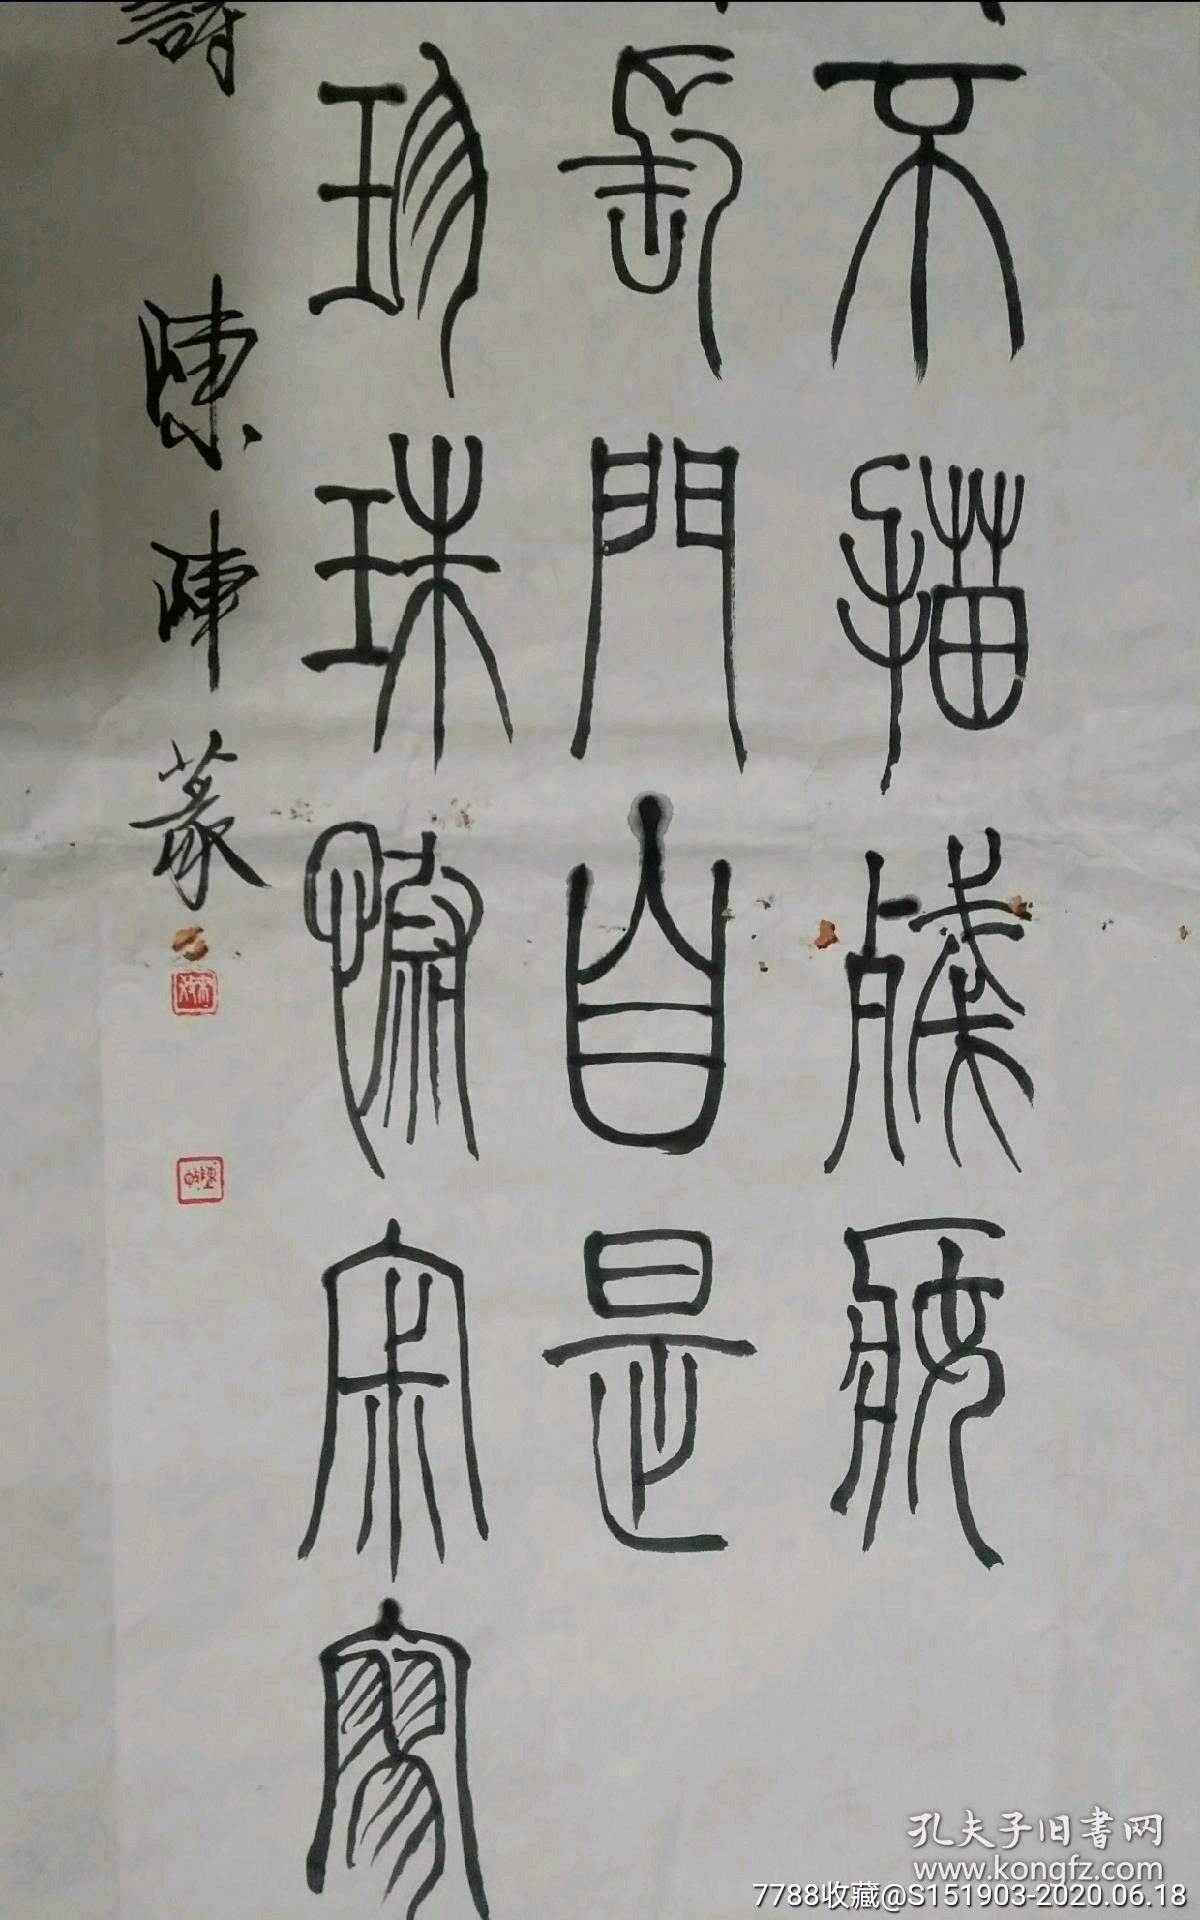 不描殘妝
長門自是
珍珠慰寂寥
詩 陳陣篆
孔夫子旧書网
www.kongfz.com
7788收藏@S151903-2020.06.18